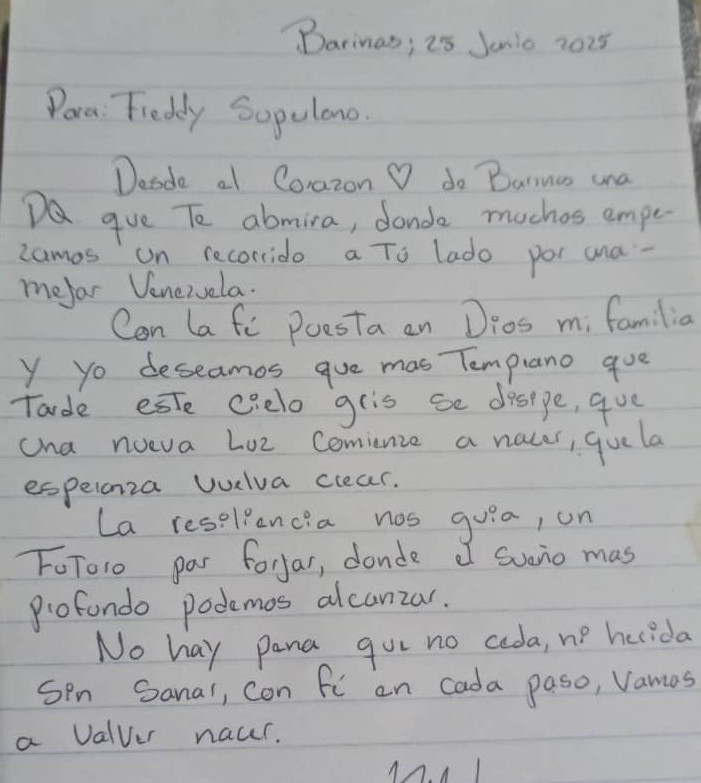 Barinas; 25 Junio 2025
Para: Freddy Supulano.
Desde el Corazon ♡ de Barinas una
DQ que Te abmira, donde muchos empe-
zamos un recorrido a Tú lado por una -
mejor Venezuela.
Con la fé Puesta en Dios mi familia
y yo deseamos que mas Temprano que
Tarde este Cielo gris se disipe, que
una nueva Luz Comienze a nacer, que la
esperanza vuelva crecer.
La resiliencia nos guia, un
Futuro por forjar, donde el sueño mas
profundo podemos alcanzar.
No hay pena que no ceda, ni herida
Sin Sanar, con fé en cada paso, Vamos
a Volver nacer.